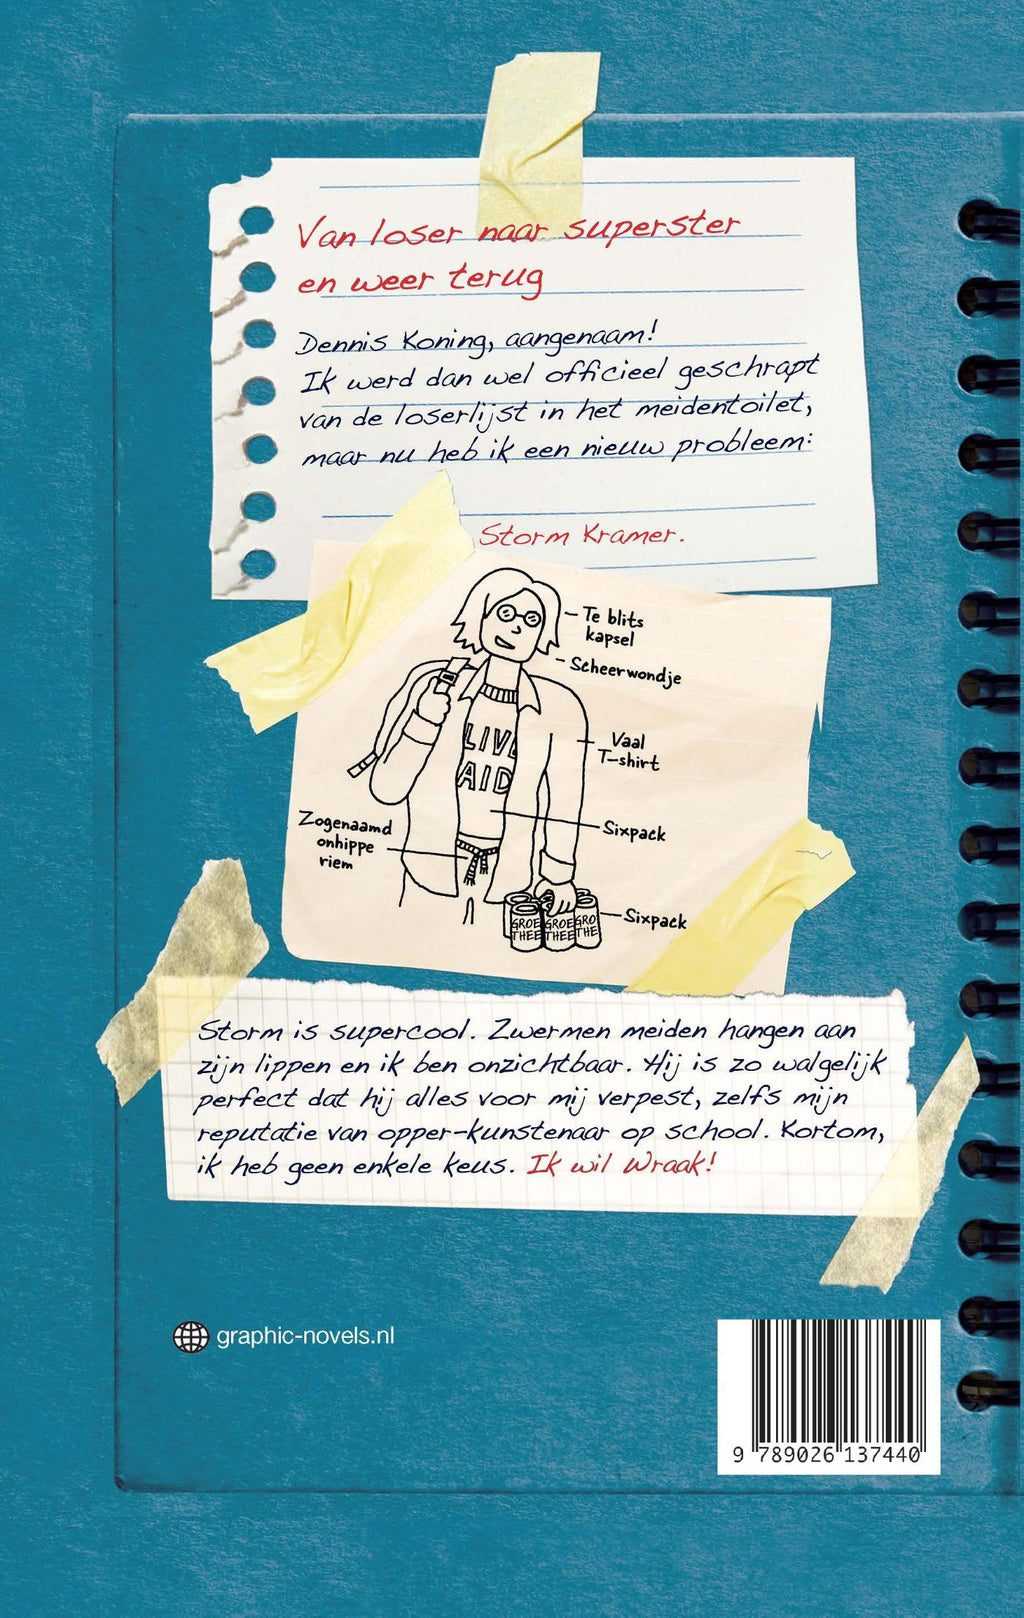 Van loser naar superster
en weer terug
Dennis Koning, aangenaam!
Ik werd dan wel officieel geschrapt
van de loserlijst in het meidentoilet,
maar nu heb ik een nieuw probleem:
Storm Kramer.
Te blits
kapsel
Scheerwondje
LIVE
AID
Vaal
T-shirt
Zogenaamd
onhippe
riem
Sixpack
Sixpack
GROE GROE GRO
THEE THEE THE
Storm is supercool. Zwermen meiden hangen aan
zijn lippen en ik ben onzichtbaar. Hij is zo walgelijk
perfect dat hij alles voor mij verpest, zelfs mijn
reputatie van opper-kunstenaar op school. Kortom,
ik heb geen enkele keus. Ik wil Wraak!
graphic-novels.nl
9 789026 137440